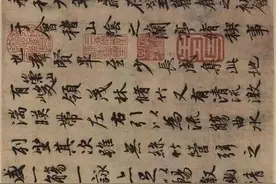 于會稽山陰之蘭亭脩稧事
也羣賢畢至少長咸集此地
有崇山峻領茂林脩竹又有清流激
湍暎帶左右引以為流觴曲水
列坐其次雖無絲竹管弦之
盛一觴一詠亦足以暢叙